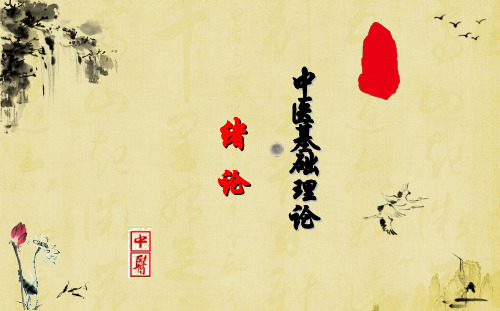 中医基础理论
绪论
中醫